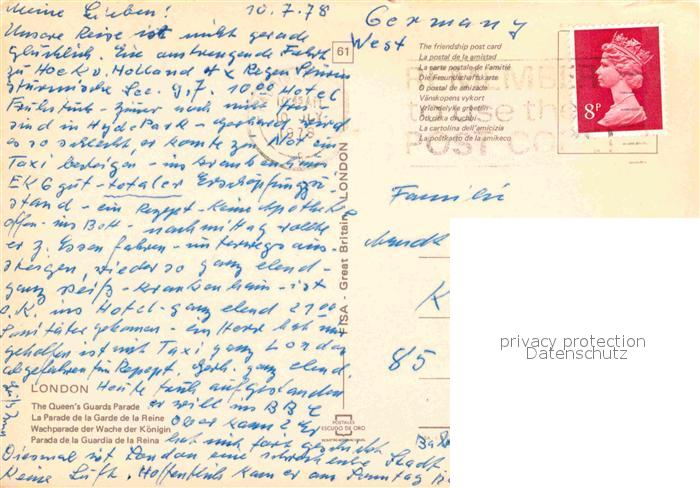 Meine Lieben! 10.7.78
Unsere Reise ist nicht gerade
glücklich. Eine anstrengende Fahrt
zu Hoek v. Holland Regen
stürmische See. 9.7. 10.00 Hotel
Frühstück - Zimmer noch nicht frei
sind im Hyde Park - Gerhard wird
es so schlecht, er konnte zu Not ein
Taxi besteigen - ins Krankenhaus
EKG gut - totaler Erschöpfungszu-
stand - ein Rezept - keine Apotheke
offen - ins Bett - nachmittag wollte
er z. Essen fahren - unterwegs aus-
steigen, wieder so ganz elend -
ganz weiß - Krankenhaus - ist
O.K. ins Hotel - ganz elend 21.00
Sanitäter gekommen - ein Herr hat mir
geholfen ist mit Taxi ganz London
abgefahren für Rezept. Gerh. ganz elend.
Heute früh aufgestanden
er will ins BBC
Diesmal ist London eine schreckliche Stadt
keine Luft. Hoffentlich kann er am Sonntag
LONDON
The Queen's Guards Parade
La Parade de la Garde de la Reine
Wachparade der Wache der Königin
Parada de la Guardia de la Reina
POSTALES
ESCUDO DE ORO
61
FISA - Great Britain, LONDON
Germany
West
The friendship post card
La postal de la amistad
La carte postale de l'amitié
Die Freundschaftskarte
O postal de amizade
Vänskapens vykort
La cartolina dell'amicizia
La postkarto de la amikeco
REMEMBER
to use the
POST CODE
10 JLY
1978
8P
Familie
K
85
privacy protection
Datenschutz